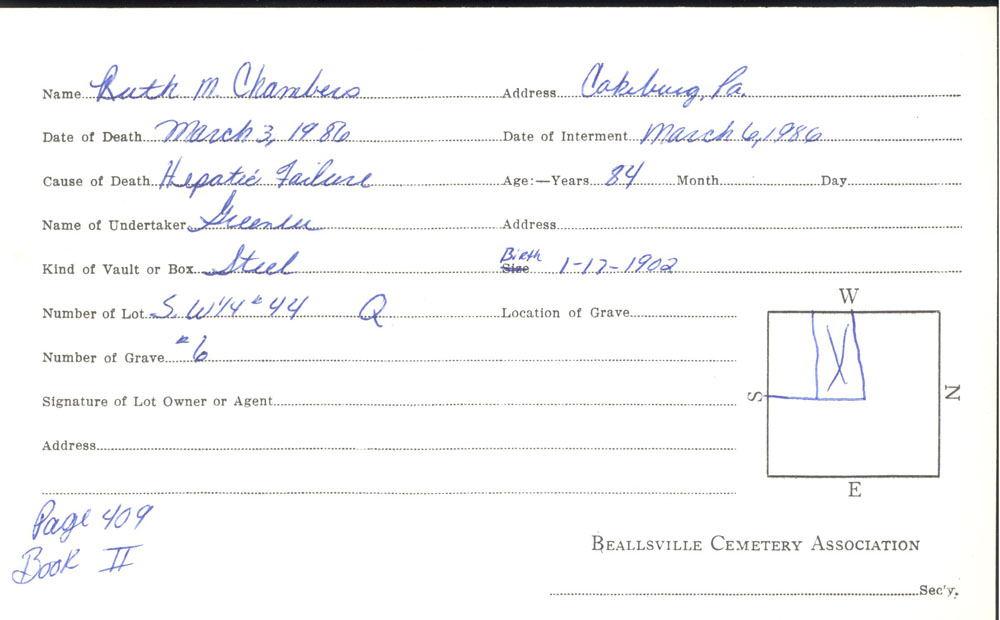 Name Ruth M. Chambers Address Cokeburg, Pa.
Date of Death March 3, 1986 Date of Interment March 6, 1986
Cause of Death Hepatic Failure Age:—Years 84 Month Day
Name of Undertaker Greenlee Address
Kind of Vault or Box Steel Size Birth 1-17-1902
Number of Lot S. W 1/4 # 44 Q Location of Grave
W
Number of Grave # 6
X
Signature of Lot Owner or Agent
S N
Address
E
Page 409
Book II
BEALLSVILLE CEMETERY ASSOCIATION
Sec'y.